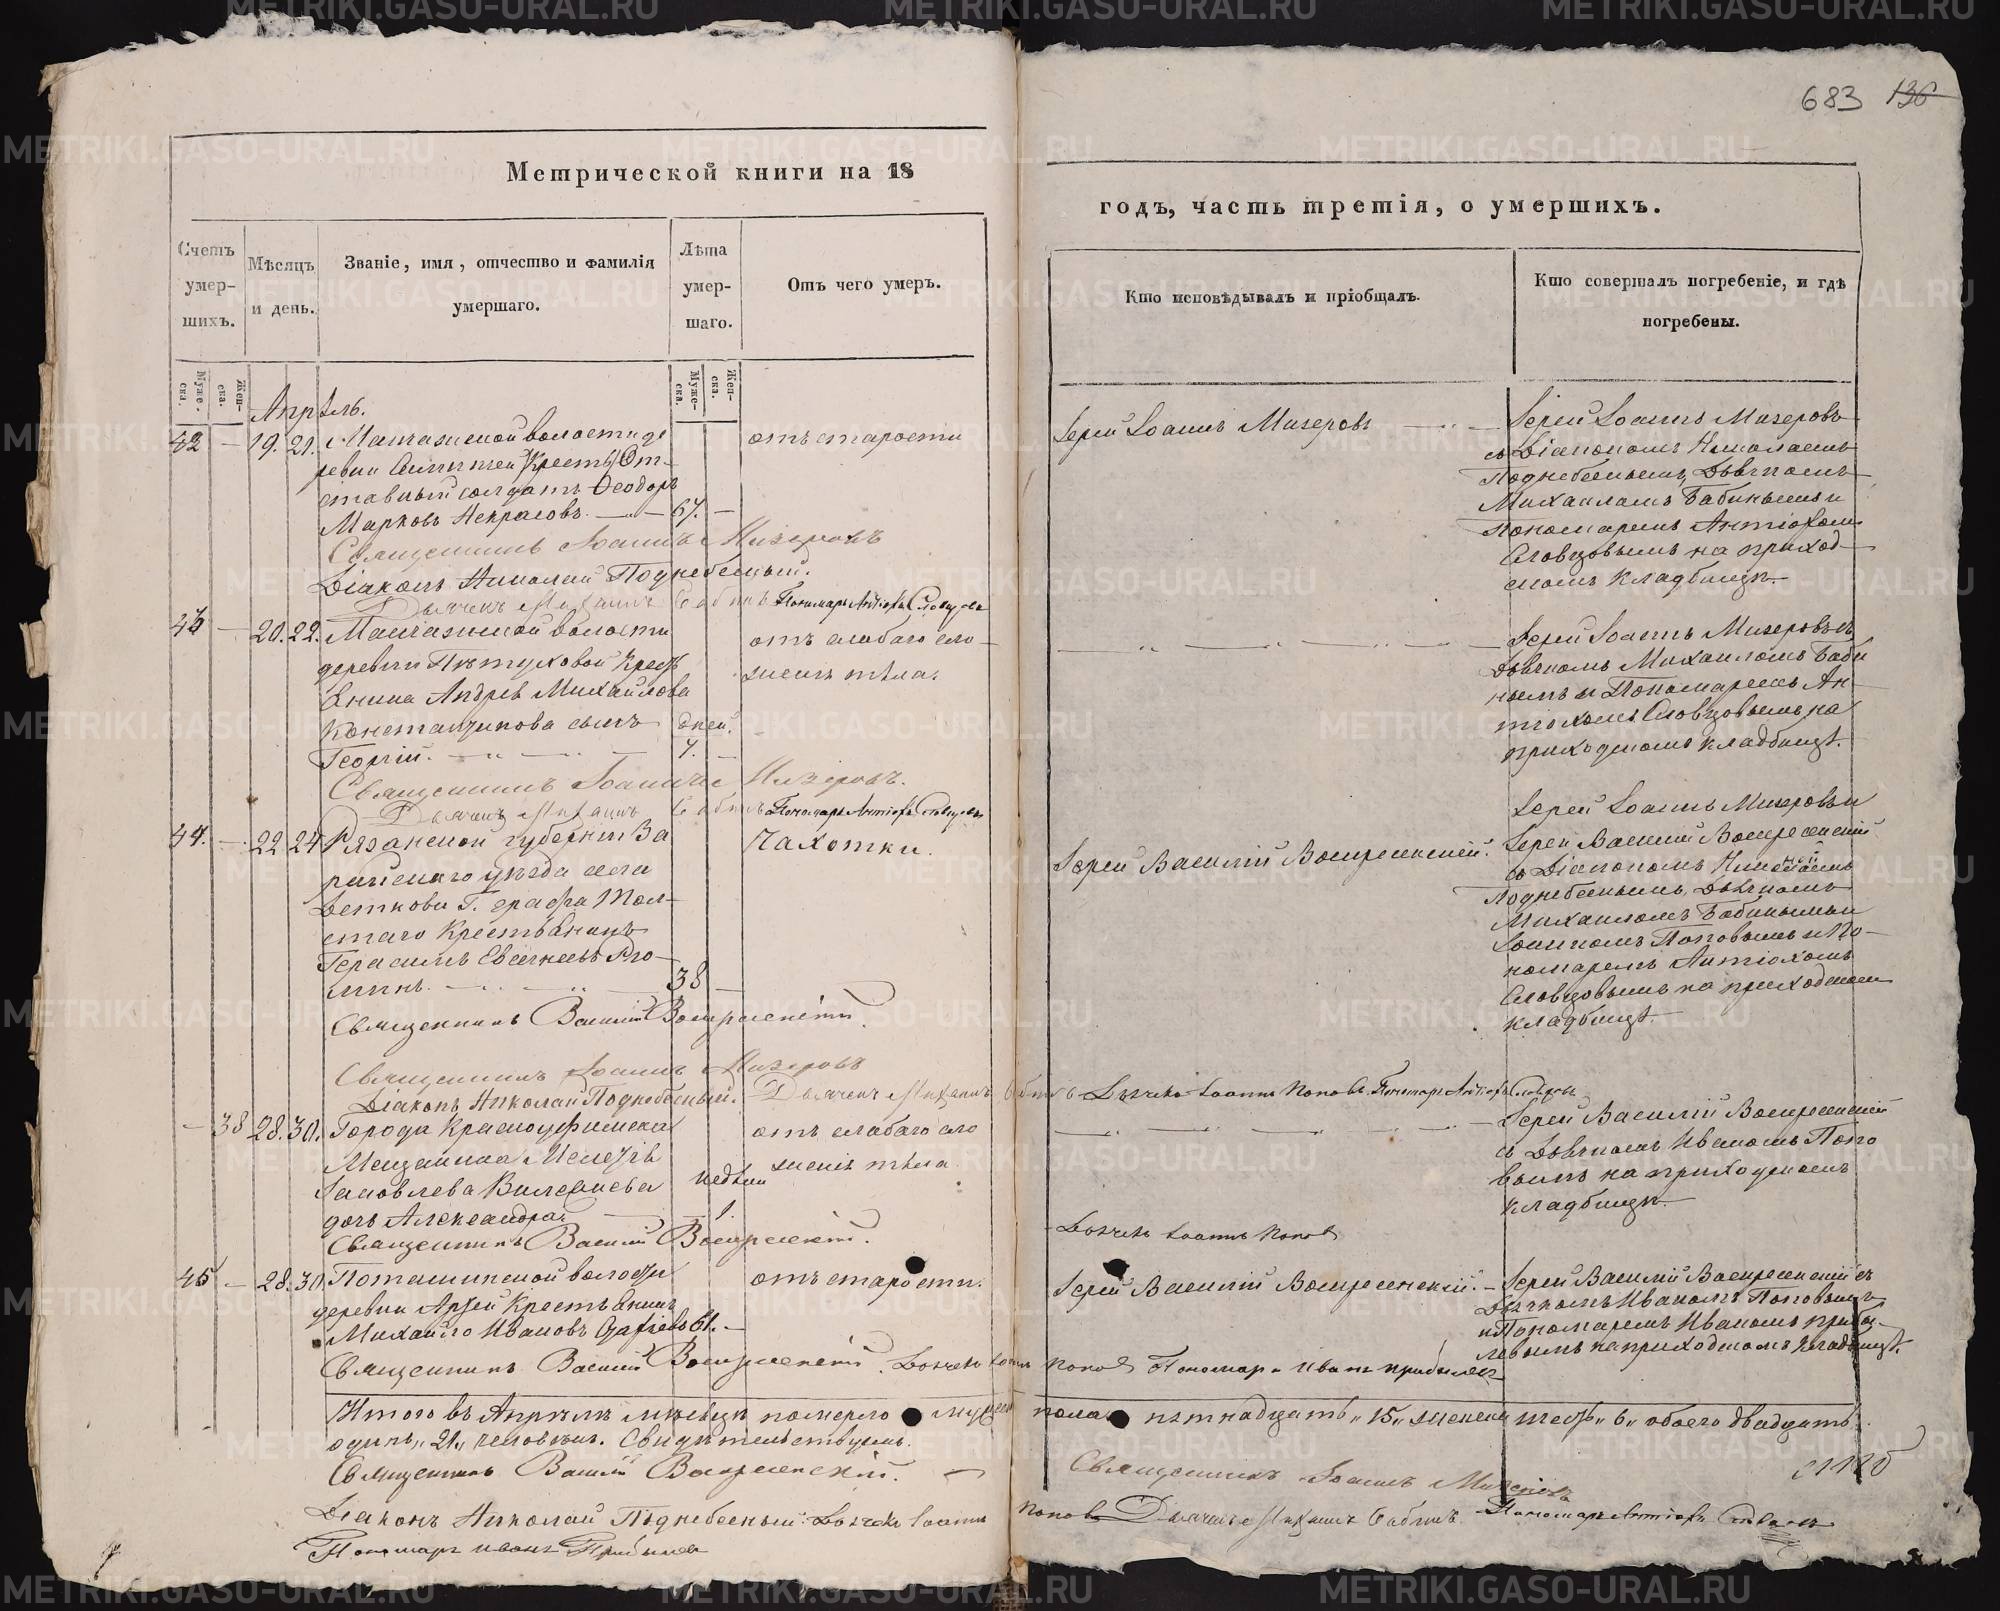 683 136
Метрической книги на 18
годъ, часть третія, о умершихъ.
Счетъ умер-шихъ.
Мѣсяцъ и день.
Званіе, имя, отчество и фамилія умершаго.
Лѣта умер-шаго.
Отъ чего умеръ.
Кто исповѣдывалъ и пріобщалъ.
Кто совершалъ погребеніе, и гдѣ погребены.
Муже-ска.
Жен-ска.
Муже-ска.
Жен-ска.
Апрѣль.
42 — 19. 21.
волости де
ревни Кресты От-
ставный солдатъ Ѳеодоръ
Марковъ Некрасовъ — 67. —
отъ старости
Іерей Іоаннъ Мизеровъ
Іерей Іоаннъ Мизеровъ
съ Діакономъ Николаемъ
Поднебеснымъ, Дьячкомъ
Михаиломъ Бабинымъ и
Пономаремъ Антіохомъ
Словцовымъ на приход-
скомъ кладбищѣ.
Священникъ Іоаннъ Мизеровъ
Діаконъ Николай Поднебесный.
Дьячекъ Михаилъ Бабинъ Пономарь Антіохъ Словцовъ
43 — 20. 22.
волости
деревни Пѣтуховой Крест
янина Андрея Михайлова
Константинова сынъ дней.
Георгій. — 7. —
отъ слабаго сло-
женія тѣла.
Іерей Іоаннъ Мизеровъ съ
Дьячкомъ Михаиломъ Баби
нымъ и Пономаремъ Ан-
тіохомъ Словцовымъ на
приходскомъ кладбищѣ.
Священникъ Іоаннъ Мизеровъ.
Дьячекъ Михаилъ Бабинъ Пономарь Антіохъ Словцовъ
44. — 22 24
Рязанской губерніи За
райскаго уѣзда села
Деткова Г. Графа Тол-
стаго Крестьянинъ
Герасимъ
38 —
Чахотки.
Іерей Василій Воскресенскій.
Іерей Іоаннъ Мизеровъ и
Іерей Василій Воскресенскій
съ Діакономъ Николаемъ
Поднебеснымъ, Дьячкомъ
Михаиломъ Бабинымъ и
Іоанномъ Поповымъ и По-
номаремъ Антіохомъ
Словцовымъ на приходскомъ
кладбищѣ.
Священникъ Василій Воскресенскій.
Священникъ Іоаннъ Мизеровъ
Діаконъ Николай Поднебесный. Дьячекъ Михаилъ Бабинъ Дьячекъ Іоаннъ Поповъ. Пономарь Антіохъ Словцовъ
— 38 28. 30.
Города Красноуфимска
Мещанина
Яковлева
дочь Александра. недѣли 1.
отъ слабаго сло
женія тѣла
Іерей Василій Воскресенскій
съ Дьячкомъ Иваномъ Попо
вымъ на приходскомъ
кладбищѣ.
Священникъ Василій Воскресенскій.
Дьячекъ Іоаннъ Поповъ
45 — 28. 30
Поташинской волости
деревни Артей Крестьянинъ
Михайло Ивановъ 61. —
отъ старости.
Іерей Василій Воскресенскій. —
Іерей Василій Воскресенскій съ
Дьячкомъ Иваномъ Поповымъ
и Пономаремъ Иваномъ Прибы-
левымъ на приходскомъ кладбищѣ.
Священникъ Василій Воскресенскій. Дьячекъ Іоаннъ Поповъ Пономарь Иванъ Прибылевъ
Итого въ Апрѣлѣ мѣсяцѣ померло мужеска пола пятнадцать „15„ женска шесть „6„ обоего двадцать
одинъ „21„ человѣкъ. Свидѣтельствуемъ.
Священникъ Василій Воскресенскій.
Священникъ Іоаннъ Мизеровъ
Діаконъ Николай Поднебесный. Дьячекъ Іоаннъ Поповъ Дьячекъ Михаилъ Бабинъ. Пономарь Антіохъ Словцовъ
Пономарь Иванъ Прибылевъ
METRIKI.GASO-URAL.RU